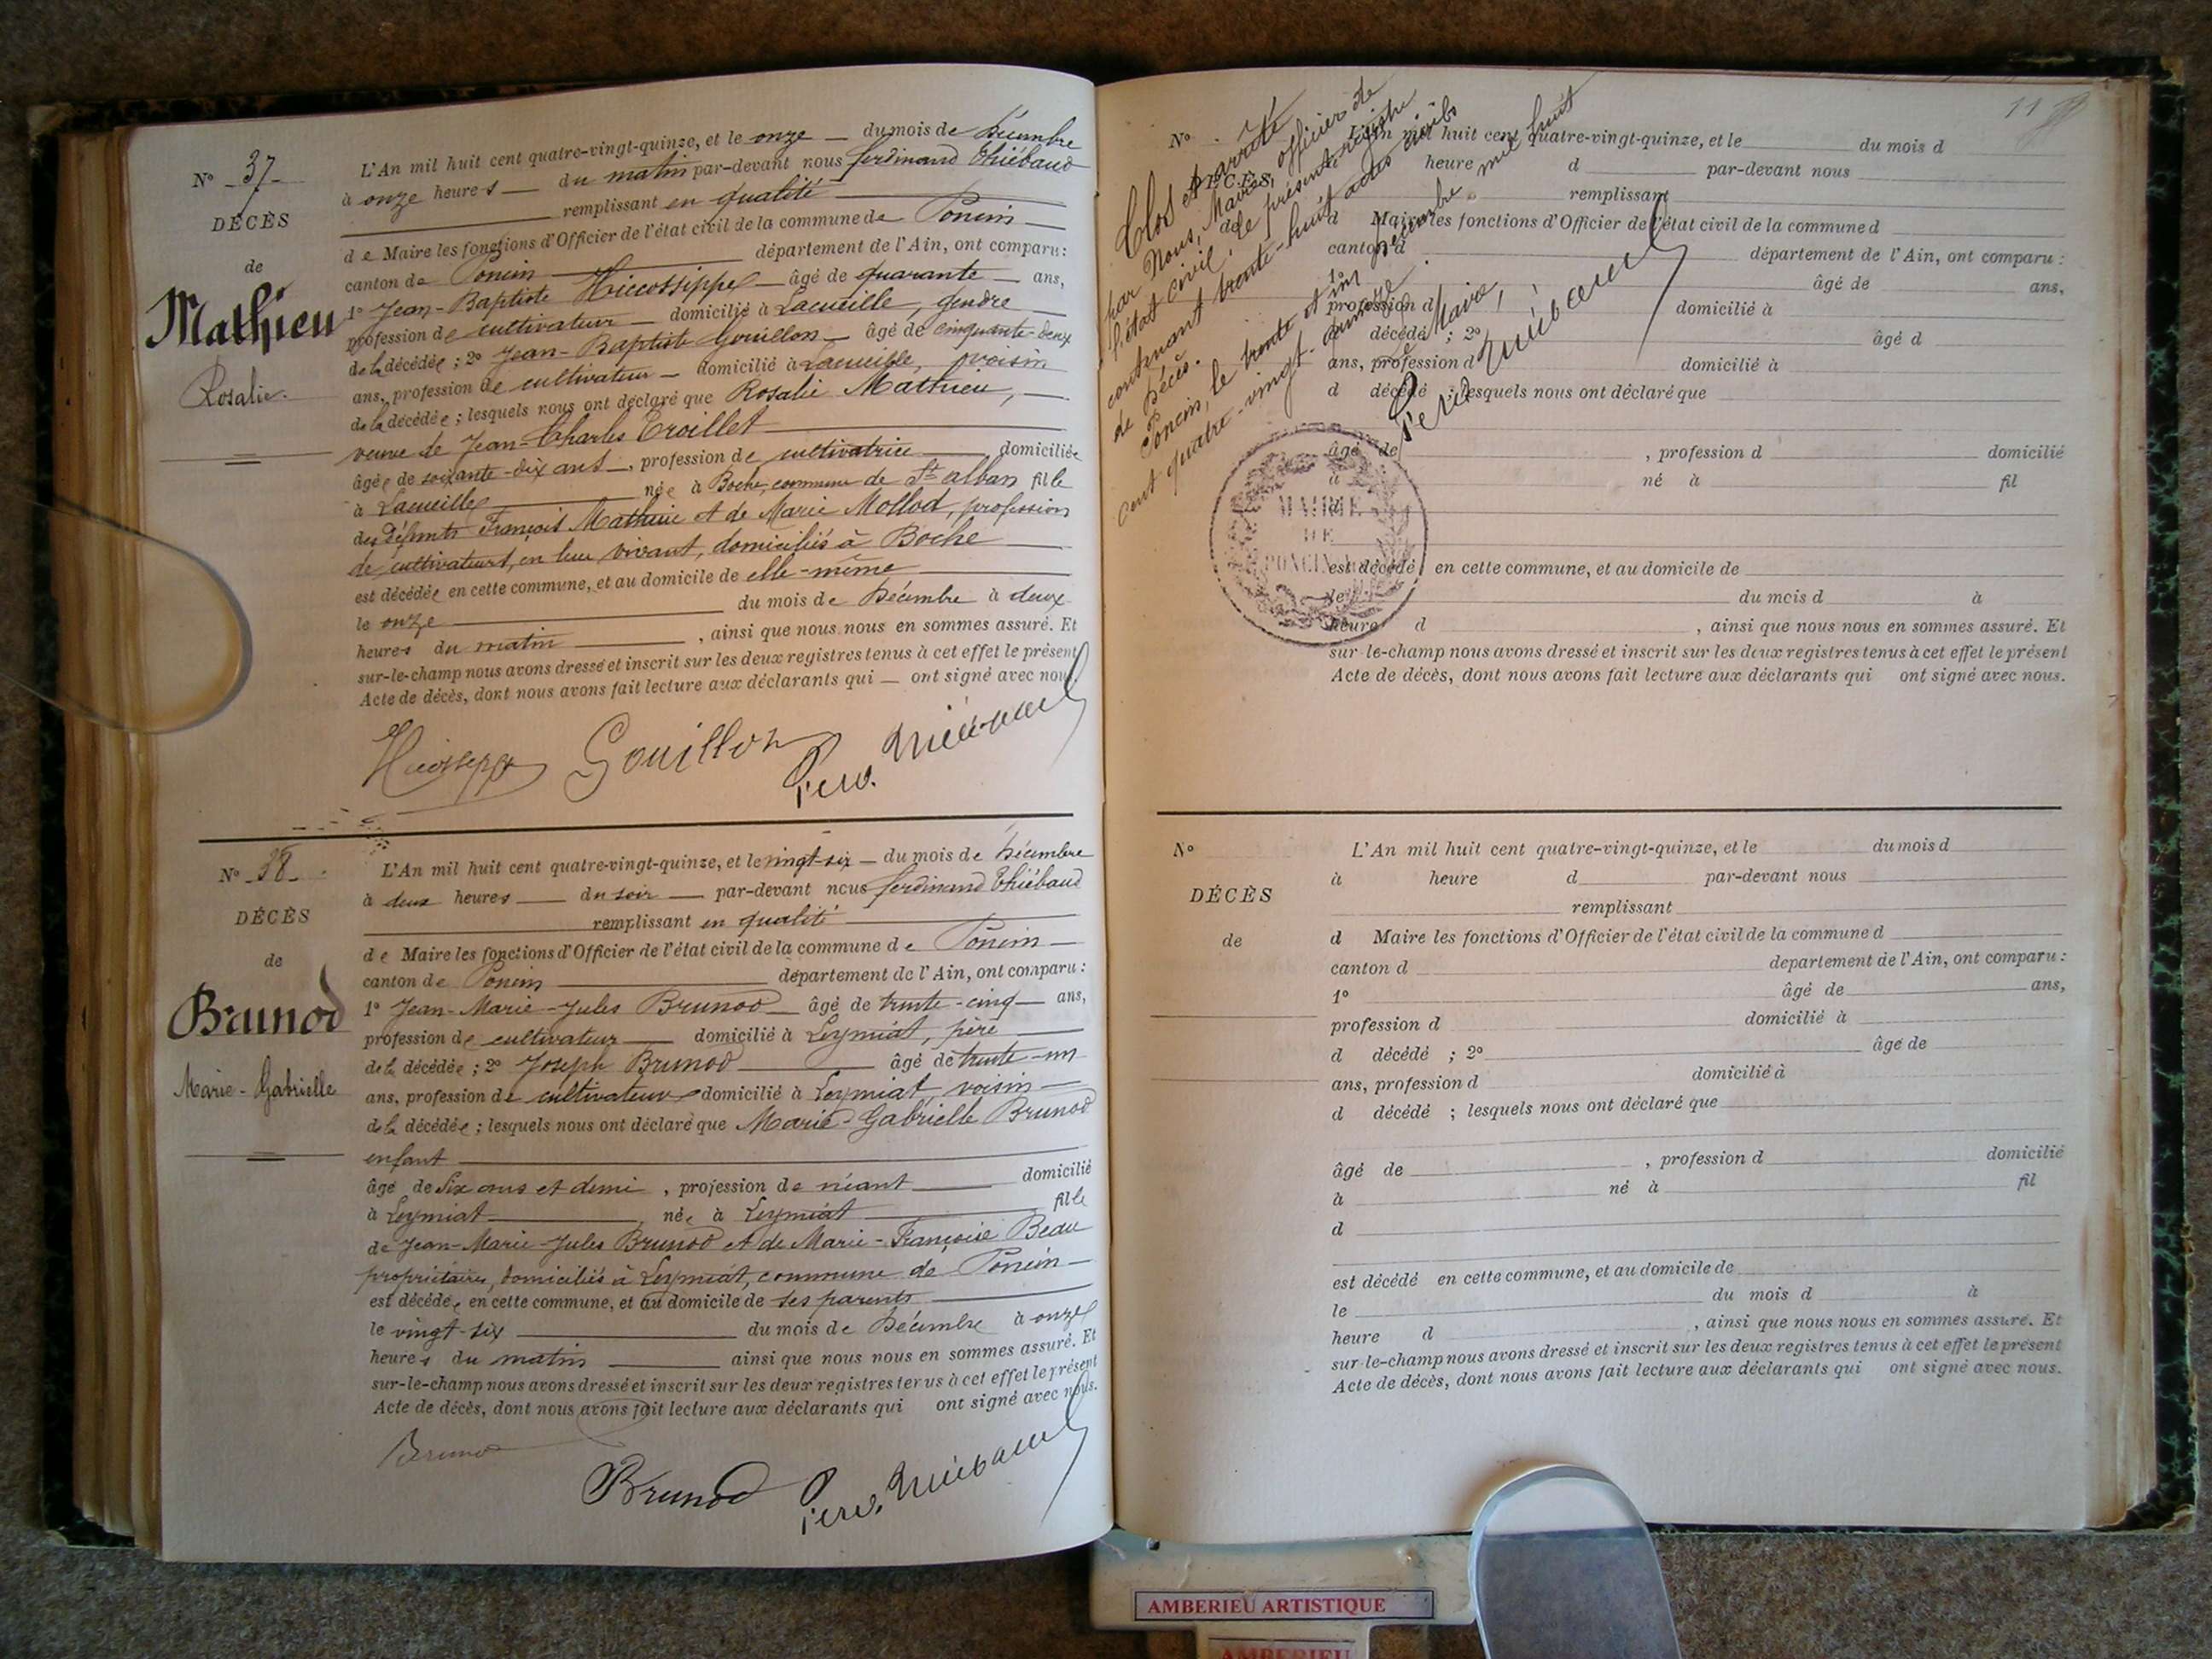 N° 37
DÉCÈS
de
Mathieu
Rosalie.
L'An mil huit cent quatre-vingt-quinze, et le onze du mois de Décembre
à onze heures du matin par-devant nous ferdinand Thiébaud
remplissant en qualité
de Maire les fonctions d'Officier de l'état civil de la commune de Poncin
canton de Poncin département de l'Ain, ont comparu:
1° Jean-Baptiste Hiccossippe âgé de quarante ans,
profession de cultivateur domicilié à Lacueille, gendre
de la décédée ; 2° Jean-Baptiste Gouillon âgé de cinquante-deux
ans, profession de cultivateur domicilié à Lacueille, voisin
de la décédée ; lesquels nous ont déclaré que Rosalie Mathieu,
veuve de Jean-Charles Troillet
âgée de soixante-dix ans, profession de cultivatrice domiciliée
à Lacueille née à Boche, commune de St alban fille
des défunts François Mathieu et de Marie Mollod, profession
de cultivateurs, en leur vivant, domiciliés à Boche
est décédée en cette commune, et au domicile de elle-même
le onze du mois de Décembre à deux
heures du matin , ainsi que nous nous en sommes assuré. Et
sur-le-champ nous avons dressé et inscrit sur les deux registres tenus à cet effet le présent
Acte de décès, dont nous avons fait lecture aux déclarants qui — ont signé avec nous.
Gouillon Ferd. Thiébaud
N° 38
DÉCÈS
de
Brunod
Marie-Gabrielle
L'An mil huit cent quatre-vingt-quinze, et le vingt-six du mois de Décembre
à deux heures du soir par-devant nous ferdinand Thiébaud
remplissant en qualité
de Maire les fonctions d'Officier de l'état civil de la commune de Poncin
canton de Poncin département de l'Ain, ont comparu :
1° Jean-Marie-Jules Brunod âgé de trente-cinq ans,
profession de cultivateur domicilié à Leymiat, père
de la décédée ; 2° Joseph Brunod âgé de trente-un
ans, profession de cultivateur domicilié à Leymiat voisin
de la décédée ; lesquels nous ont déclaré que Marie-Gabrielle Brunod
enfant
âgé de six ans et demi , profession de néant domicilié
à Leymiat née à Leymiat fille
de Jean-Marie-Jules Brunod et de Marie-Françoise Beau
propriétaires, domiciliés à Leymiat, commune de Poncin
est décédée en cette commune, et au domicile de ses parents
le vingt-six du mois de Décembre à onze
heures du matin ainsi que nous nous en sommes assuré. Et
sur-le-champ nous avons dressé et inscrit sur les deux registres tenus à cet effet le présent
Acte de décès, dont nous avons fait lecture aux déclarants qui ont signé avec nous.
Brunod
Brunod Ferd. Thiébaud
11
Clos et arrêté
par Nous, Maire, officier de
l'état civil, le présent registre
contenant trente-huit actes civils
de décès.
Poncin, le trente et un Décembre mil huit
cent quatre-vingt-quinze.
Le Maire,
Ferd Thiébaud
MAIRIE
DE
PONCIN
N°
DÉCÈS
de
L'An mil huit cent quatre-vingt-quinze, et le du mois d
heure d par-devant nous
remplissant
d Maire les fonctions d'Officier de l'état civil de la commune d
canton d département de l'Ain, ont comparu :
1° âgé de ans,
profession d domicilié à
d décédé ; 2° âgé d
ans, profession d domicilié à
d décédé ; lesquels nous ont déclaré que
âgé de , profession d domicilié
à né à fil
est décédé en cette commune, et au domicile de
le du mois d à
heure d , ainsi que nous nous en sommes assuré. Et
sur-le-champ nous avons dressé et inscrit sur les deux registres tenus à cet effet le présent
Acte de décès, dont nous avons fait lecture aux déclarants qui ont signé avec nous.
N°
DÉCÈS
de
L'An mil huit cent quatre-vingt-quinze, et le du mois d
à heure d par-devant nous
remplissant
d Maire les fonctions d'Officier de l'état civil de la commune d
canton d departement de l'Ain, ont comparu :
1° âgé de ans,
profession d domicilié à
d décédé ; 2° âgé de
ans, profession d domicilié à
d décédé ; lesquels nous ont déclaré que
âgé de , profession d domicilié
à né à fil
d
est décédé en cette commune, et au domicile de
le du mois d à
heure d , ainsi que nous nous en sommes assuré. Et
sur-le-champ nous avons dressé et inscrit sur les deux registres tenus à cet effet le présent
Acte de décès, dont nous avons fait lecture aux déclarants qui ont signé avec nous.
AMBERIEU ARTISTIQUE
AMBERIEU